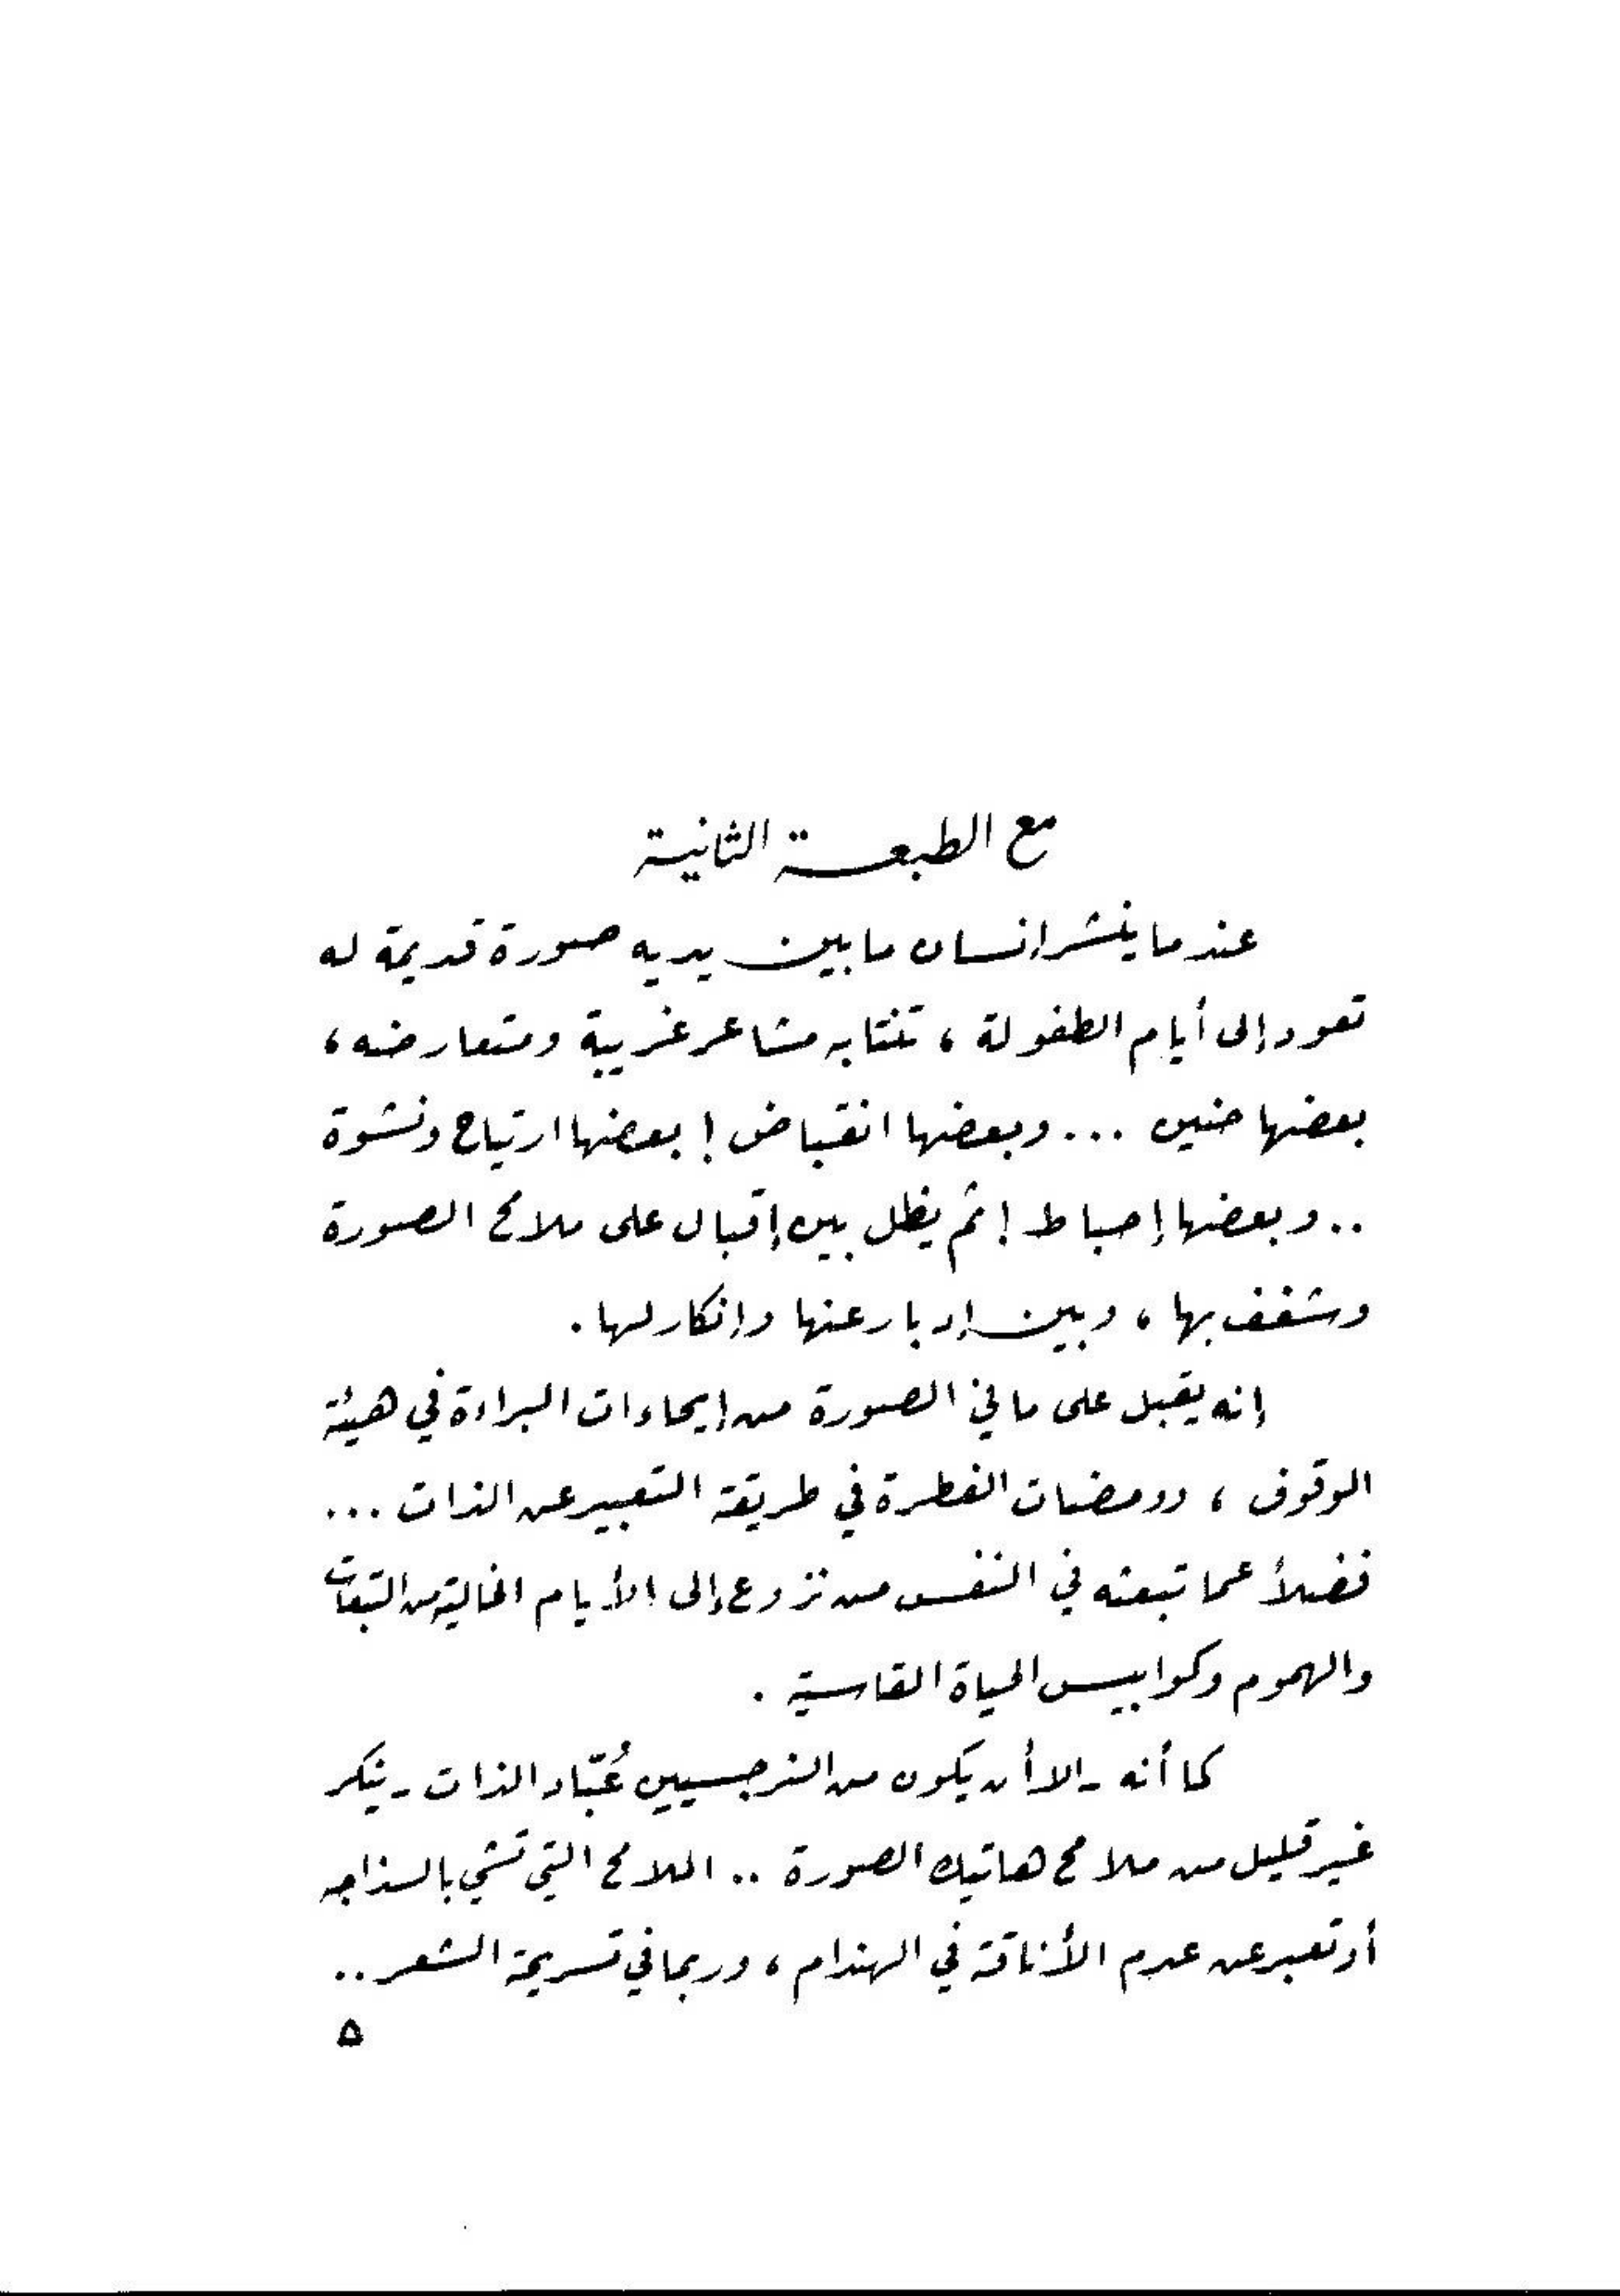 مع الطبعة الثانية
عندما ينشر إنسان ما بين يديه صورة قديمة له
تعود إلى أيام الطفولة ، تنتابه مشاعر غريبة ومتعارضه ،
بعضها حنين ... وبعضها انقباض ! بعضها ارتياح ونشوة
.. وبعضها إحباط ! ثم يظل بين إقبال على ملامح الصورة
وشغف بها ، وبين إدبار عنها وإنكار لها .
إنه يقبل على ما في الصورة من إيحاءات البراءة في هيئة
الوقوف ، وومضات الفطرة في طريقة التعبير عن الذات ...
فضلاً عما تبعثه في النفس من نزوع إلى الأيام الخالية من التبعات
والهموم وكوابيس الحياة القاسية .
كما أنه - إلا أن يكون من النرجسيين عُبّاد الذات - ينكر
غير قليل من ملامح هاتيك الصورة .. الملامح التي تشي بالسذاجه
أو تعبر عن عدم الأناقة في الهندام ، وربما في تسريحة الشعر ..
٥